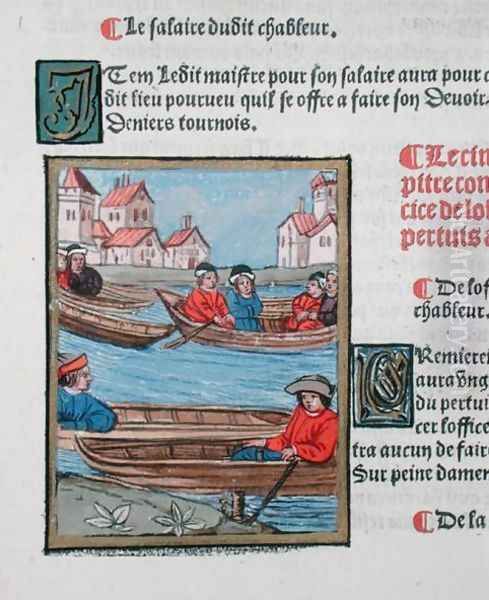 ¶ Le salaire dudit chableur.
ITem Ledit maistre pour son salaire aura pour
dit lieu pourueu quil se offre a faire son Deuoir
Deniers tournois.
¶ Le cin
pitre con
cice de lof
pertuis a
¶ De lof
chableur.
PRemierem
aura vng
du pertui
cer loffice
tra aucun de faire
Sur peine damen
¶ De la